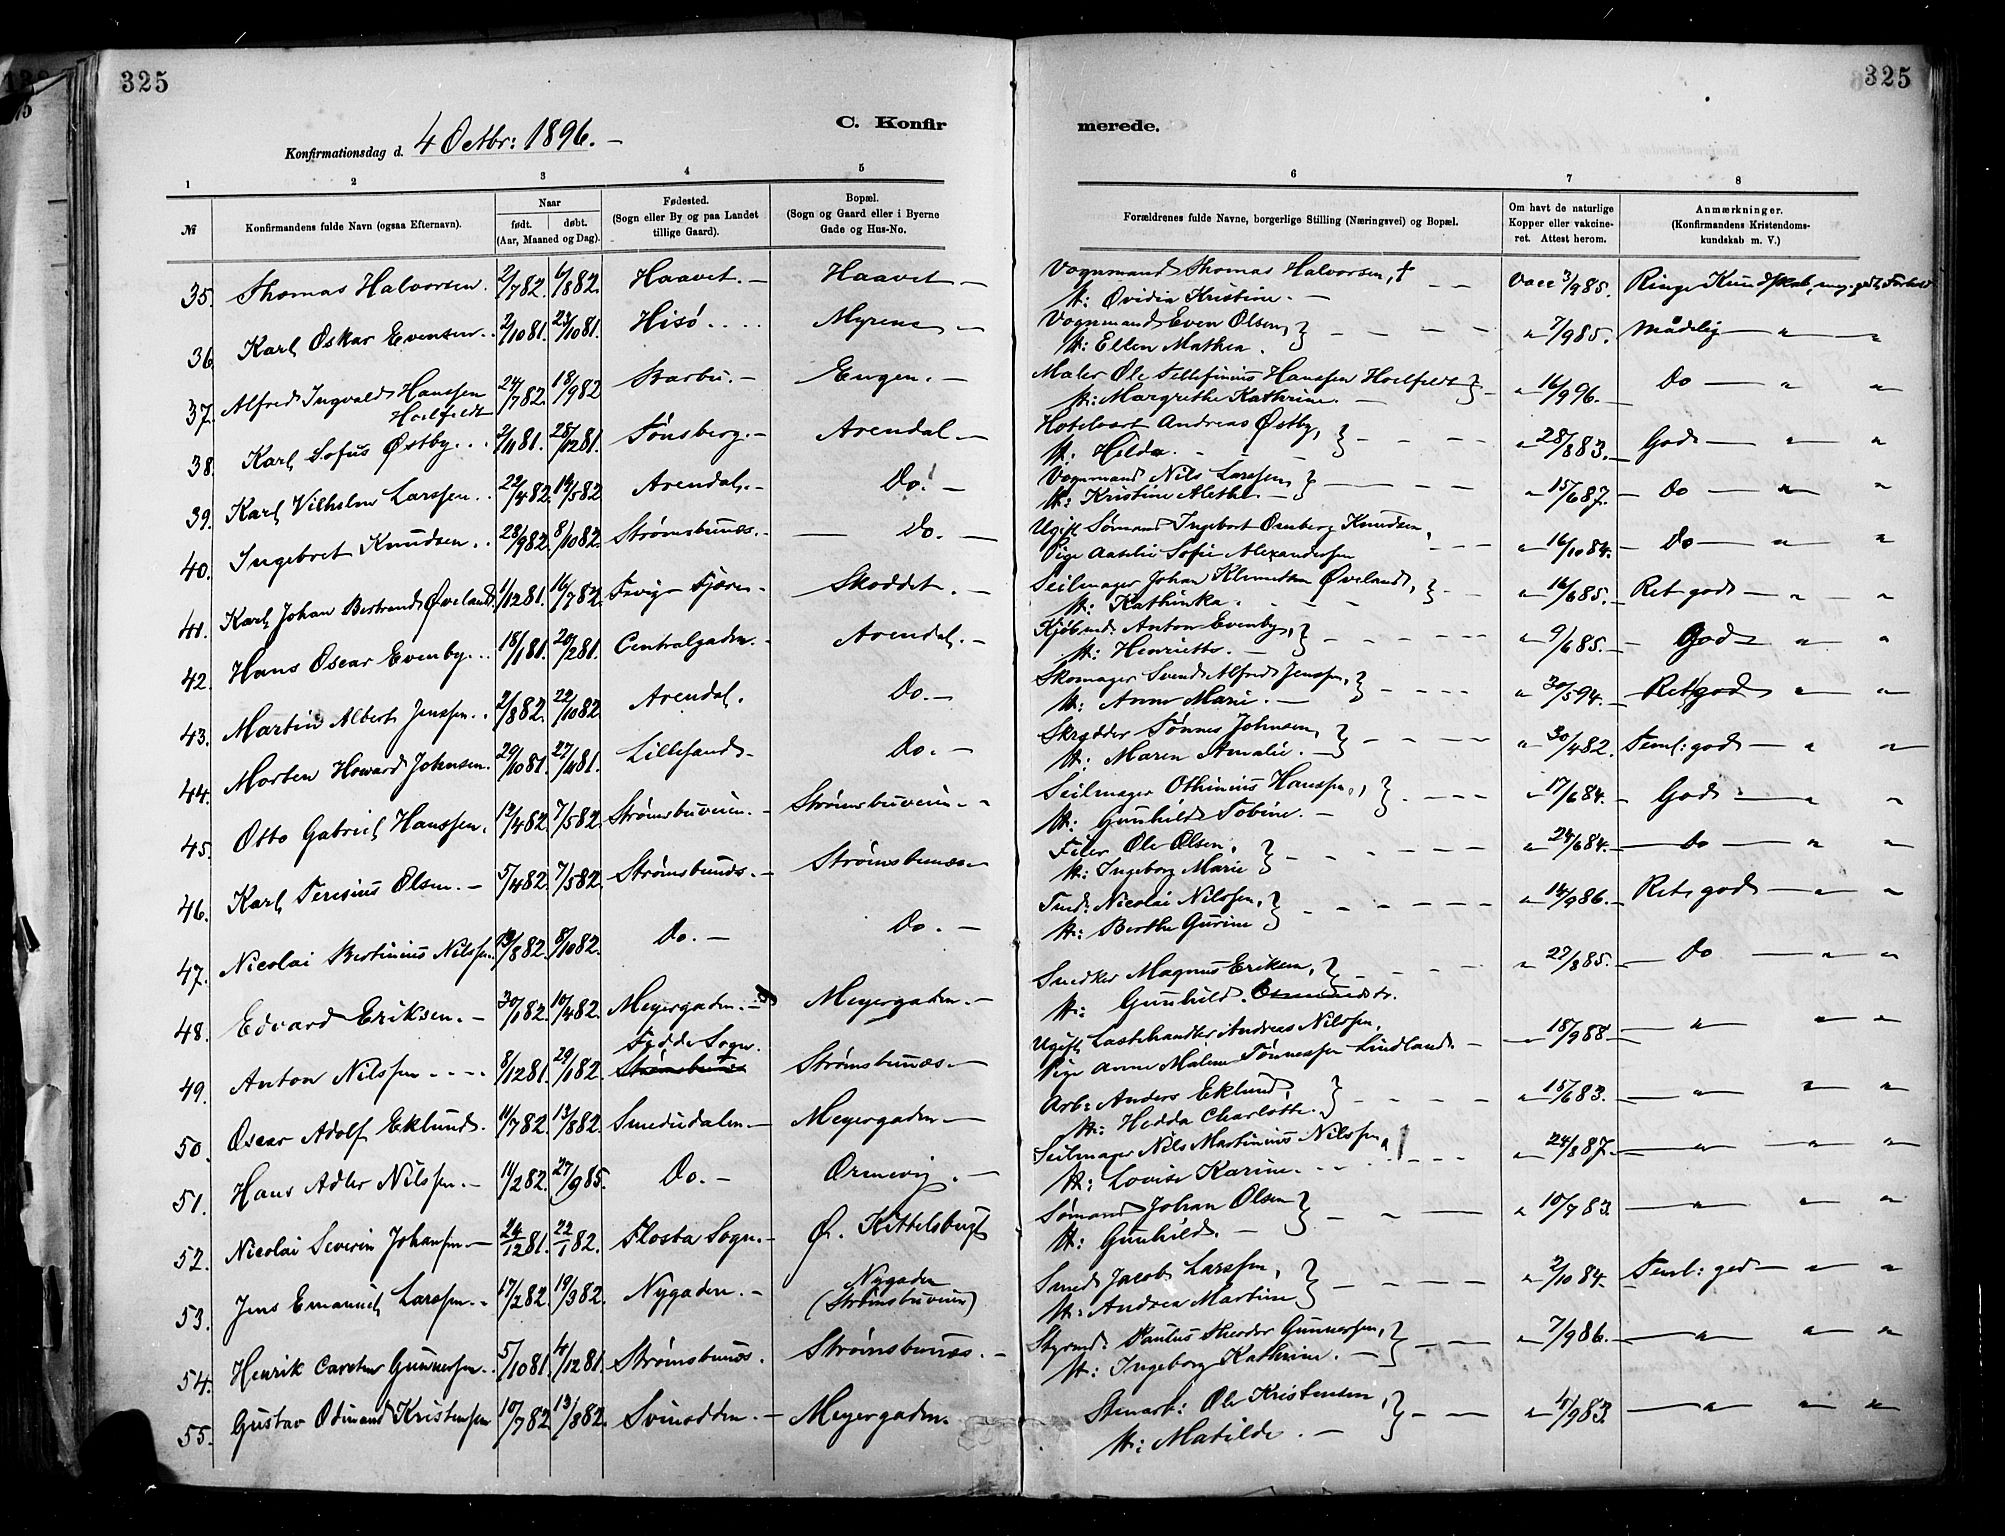 325
325
Konfirmationsdag d. 4 Octbr: 1896. –
C. Konfir
merede.
1 2 3 4 5 6 7 8
№
Konfirmandens fulde Navn (ogsaa Efternavn).
Naar
født. døbt.
(Aar, Maaned og Dag).
Fødested.
(Sogn eller By og paa Landet
tillige Gaard).
Bopæl.
(Sogn og Gaard eller i Byerne
Gade og Hus-No.
Forældrenes fulde Navne, borgerlige Stilling (Næringsvei) og Bopæl.
Om havt de naturlige
Kopper eller vakcine-
ret. Attest herom.
Anmærkninger.
(Konfirmandens Kristendoms-
kundskab m. V.)
35. Thomas Halvorsen. 2/7 82. 6/8 82. Haavet. – Haavet – Vognmand Thomas Halvorsen, † – – Vacc 3/9 85. Ringe Kundskab, meg. godt Forhold
H: Ovidia Kristine. –
36. Karl Oskar Evensen.. 2/10 81. 23/10 81. Hisö.... Myrene – Vognmand Even Olsen, } – – – – " 7/9 85. Mådelig – " – "
H: Ellen Mathea.
37. Alfred Ingvald Hanssen 24/7 82. 18/9 82 Barbu. – Engen. – Maler Ole Tellefinius Hanssen Hoelfeldt } – " 16/9 96. – Do – " "
Hoelfeldt H: Margrethe Kathrine. –
38. Karl Sofus Østby... 2/11 81. 28/12 81. Tønsberg. – Arendal – Hotelvært Andreas Østby, } – – – – " 28/8 83. – God – " "
H: Hilda. – – –
39. Karl Vilhelm Larssen.. 22/4 82. 14/5 82 Arendal. – Do. – Vognmand Nils Larssen, } – – – – " 15/6 87. – Do – " "
H: Kristine Alethe –
40. Ingebret Knudsen.. 28/9 82. 8/10 82. Strømsbunæs. – – Do. – Ugift Sømand Ingebort Osenberg Knudsen, " 16/10 84. – Do – " "
Pige Aaselie Sofie Alexandersen – – –
41. Karl Johan Bertrand Øveland. 1/12 81. 16/7 82. Fevig Fjære. – Skoddet. – Seilmager Johan Klemetsen Øveland, } – – " 16/6 85. – Ret god – " – "
H: Kathinka. – – –
42. Hans Oscar Evenby... 18/1 81. 20/2 81. Centralgaden. – Arendal. – Kjøbmd: Anton Evenby, } – – – – " 9/6 85. – God " "
H: Henriette. –
43. Martin Albert Jenssen.. 2/8 82. 22/10 82 Arendal. Do. – Skomager Svend Alfred Jenssen, } – – – " 30/5 94. – Ret god " "
H: Anne Marie. –
44. Morten Howard Johnsen. 29/10 81. 27/11 81. Lillesand. – Do. – Skrædder Tønnes Johnsen, } – – – " 30/4 82. Teml: god – " "
H: Maren Amalie. –
45. Otto Gabriel Hanssen. 12/4 82. 7/5 82. Strømsbuveien. – Strømsbuveien. – Seilmager Othinius Hanssen,, } – – – " 17/6 84. – God – " "
H: Gunhild Tobine. –
46. Karl Teresius Olsen. – 5/4 82. 7/5 82. Strømsbunæs. – Strømsbunæs – Feier Ole Olsen, } – – – – " 24/6 84. – Do – " "
H: Ingeborg Marie
47. Nicolai Bertinius Nilssen. 13/8 82. 8/10 82. Do. – Do. – Tmd: Nicolai Nilssen, } – – – – " 14/9 86. – Ret god – " – "
H: Berthe Gurine
48. Edvard Eriksen. – 30/1 82. 10/4 82. Meyergaden. – Meyergaden. – Snedker Magnus Eriksen, } – – – – " 22/8 85. – Do – " – "
H: Gunhild. Osmundsdr.
49. Anton Nilssen – – – – 8/12 81. 29/1 82. Fødde Sogn. Strømsbunæs. – Ugift Lastehandler Andreas Nilssen, – 18/9 88 – – " – " – "
Strømsbunæs Pige Anne Malene Tønnessen Lindland. –
50. Oscar Adolf Eklund. 11/7 82. 13/8 82. Smededalen – Meyergaden – Arb: Anders Eklund, } – – – – " 15/6 83. – " – " "
H: Hedda Charlotte.
51. Hans Adler Nilssen. – 11/2 82. 27/9 85. Do. – Ormevig. – Seilmager Nils Martinius Nilssen – – – " 24/8 87. – – " – " – "
H: Lovise Karine. – – –
52. Nicolai Severin Johanssen – 24/12 81. 22/1 82. Flosta Sogn. – Ø. Kittelsbugt Sømand Johan Olsen } – – – " 10/7 83. – " – " "
H: Gunhild. –
53. Jens Emanuel Larssen. – 17/2 82. 19/3 82. Nygaden. – Nygaden Smed Jacob Larssen, } – – – – " 2/10 84. – Teml: god – " – "
(Strømsbuveien) H: Andrea Martine
54. Henrik Carsten Gunnersen.. 5/10 81. 4/12 81. Strømsbunæs. Strømsbunæs. – Styrmd: Paulus Theodor Gunnersen, } – – " 7/9 86. – " – " "
H: Ingeborg Kathrine. –
55. Gustav Odinand Kristensen 10/7 82. 13/8 82. Svinodden. – Meyergaden. Stenarb: Ole Kristensen, } – – " 4/9 83. – " – " – "
H: Matilde. –